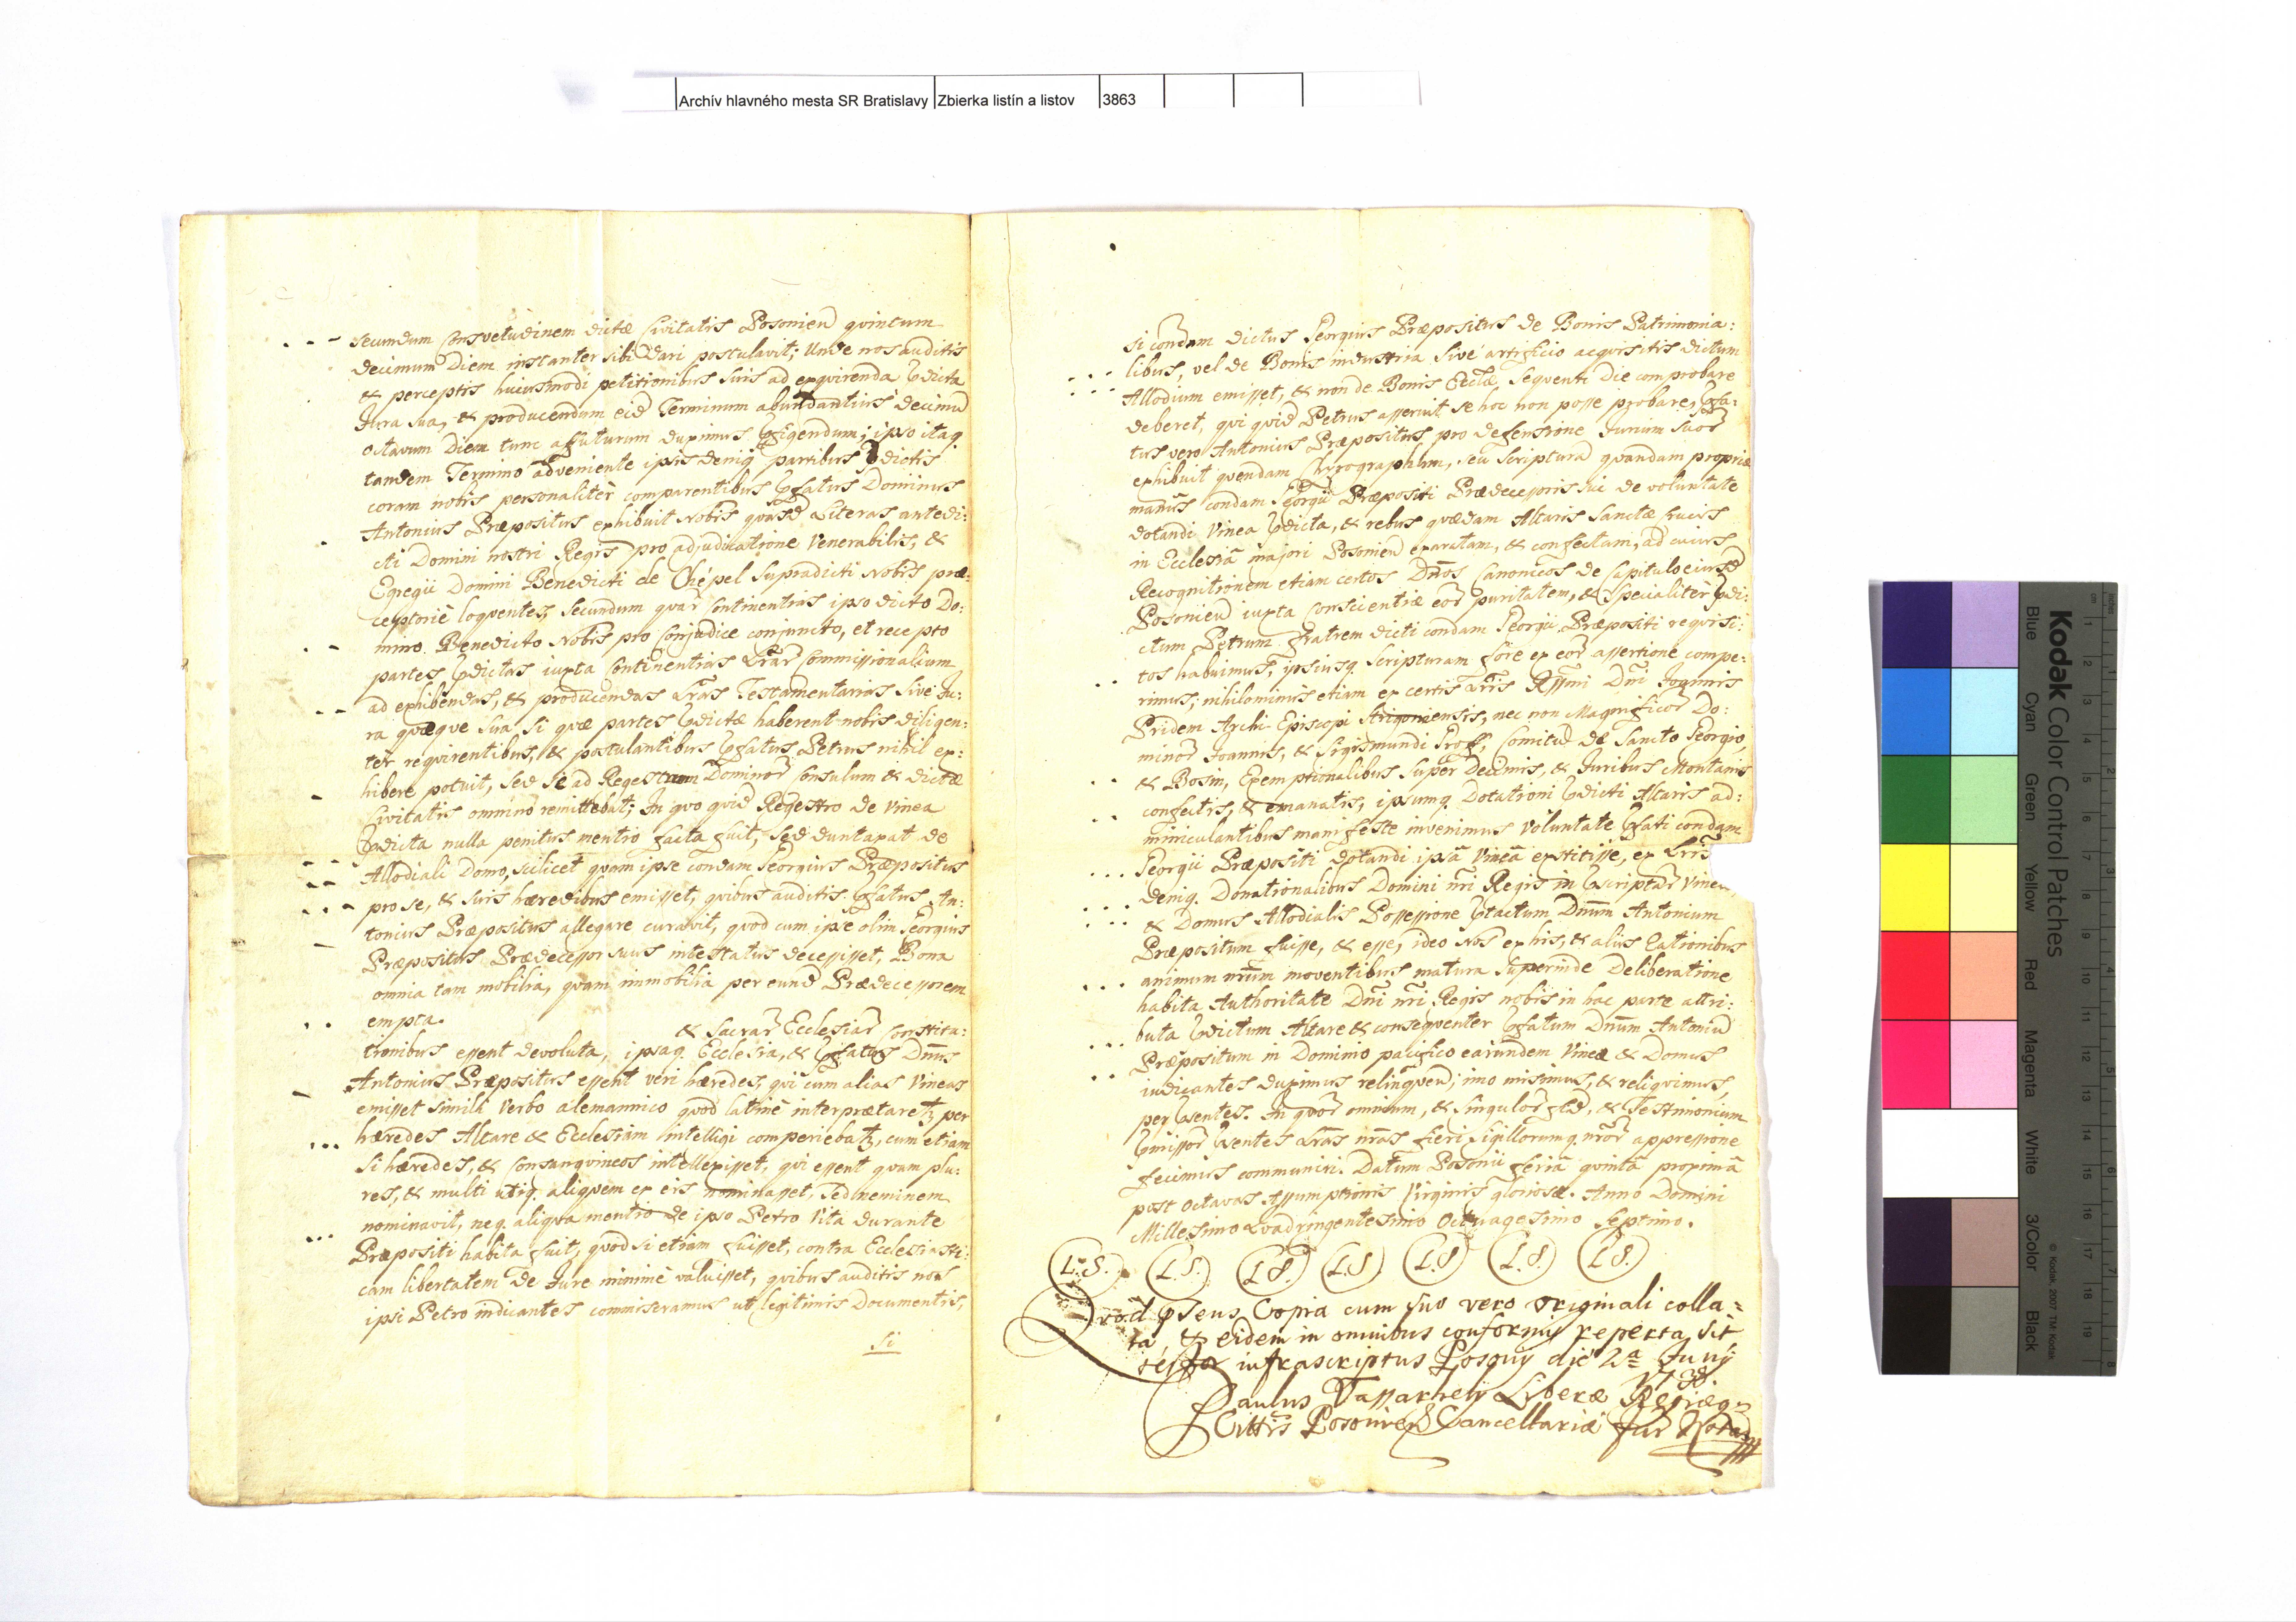 Archív hlavného mesta SR Bratislavy Zbierka listín a listov 3863
secundum Consvetudinem dictæ Civitatis Posonien quintum
decimum Diem instanter sibi Dari postulavit; Unde nos auditis
& perceptis huiusmodi petitionibus suis ad exqvirenda dicta
Jura sua, & producendum eid Terminum abundantius decimũ
octavum Diem tunc affuturum duximus figendum; ipso itaq.
tandem Termino adveniente ipsis deniq partibus dictis
coram nobis personaliter comparentibus fatus Dominus
Antonius Præpositus exhibuit Nobis quasd Literas antedi:
cti Domini nostri Regis pro adjudicatione Venerabilis, &
Egregii Domini Benedicti de Chépel Supradicti Nobis præ:
ceptoriè loqventes, secundum quar Continentias ipso dicto Do:
mino Benedicto Nobis pro Conjudice conjuncto, et recepto
partes dictas iuxta Continentias Lrar Commissionalium
ad exhibendas, & producendas Lras Testamentarias sive Ju:
ra quæque sua, si quæ partes dictæ haberent nobis diligen:
ter reqvirentibus, & postulantibus fatus Petrus nihil ex:
hibere potuit, sed se ad Regestrum Dominor Consulum & dictæ
Civitatis omnino remittebat; In quo quid Regestro de Vinea
dicta nulla penitus mentio facta fuit, sed duntaxat de
Allodiali Domo, scilicet quam ipse condam Georgius Præpositus
pro se, & suis hæredibus emisset, quibus auditis fatus An:
tonius Præpositus allegare curavit, quod cum ipse olim Georgius
Præpositus Prædecessor suus intestatus decessisset, Bona
omnia tam mobilia, quam immobilia per eund Prædecessorem
empta.
& Sacrar Ecclesiar Constitu:
tionibus essent devoluta, ipsaq. Ecclesia, & fatus Dnus
Antonius Præpositus essent veri hæredes, qui cum alias Vineas
emisset simili Verbo alemannico quod latine interprætaretz per
hæredes Altare & Ecclesiam intelligi comperiebatz, cum etiam
si hæredes, & Consanquineos intellexisset, qui essent quam plu:
res, & multi utiq. aliqvem ex eis nominasset, sed neminem
nominavit, neq. aliqva mentio de ipso Petro Vita durante
Præpositi habita fuit, quod si etiam fuisset, contra Ecclesiasti:
cam libertatem de Jure minimè valuisset, quibus auditis nos
ipsi Petro indicantes commiseramus ut legitimis Documentis,
si
si condam dictus Georgius Præpositus de Bonis Patrimonia:
libus, vel de Bonis industria sive artificio acqvisitis dictum
Allodium emisset, & non de Bonis Eccłæ, seqventi Die comprobare
deberet, qui quid Petrus asseruit se hoc non posse probare, fa:
tus vero Antonius Præpositus pro defensione Jurium suor
exhibuit quendam Chyrographum, seu Scripturã quandam propriæ
manus condam Georgii Præpositi Prædecessoris sui de voluntate
dotandi Vinea dicta, & rebus quædam Altaris Sanctæ Crucis
in Ecclesiã majori Posonien exaratam, & confectam, ad cuius
Recognitionem etiam certos Dnos Canonicos de Capitulo eiusd
Posonien iuxta Conscientiæ eor puritatem, & Specialitèr di:
ctum Petrum fratrem dicti condam Georgii Præpositi reqvisi:
tos habuimus, ipsiusq. Scripturam fore ex eor assertione compe:
rimus; nihilominus etiam ex certis Lris Rssmi Dni Joannis
Pridem Archi-Episcopi Strigoniensis, nec non Magnificor Do:
minor Joannis, & Sigismundi Comitũ de Sancto Georgio,
& Bosin, Exemptionalibus Super Decimis, & Juribus Montanis
confectis, & emanatis, ipsumq. Dotationi dicti Altaris ad:
miniculantibus manifeste invenimus Voluntate fati condam
Georgii Præpositi dotandi ipsã Vineã extitisse, ex Lris
deniq. Donationalibus Domini nri Regis in scriptar Vinea
& Domus Allodialis Possessione tactum Dnum Antonium
Præpositum fuisse, & esse, ideo Nos ex his, & aliis Rationibus
animum nrum moventibus matura Superinde Deliberatione
habita Authoritate Dni nri Regis nobis in hac parte attri:
buta dictum Altare & conseqventer fatum Dnum Antoniũ
Præpositum in Dominio pacifico earundem Vineæ & Domus
iudicantes duximus relinqvend; imo misimus, & reliqvimus,
per sentes. In quor omnium, & Singulor fid, & Testimonium
missor sentes Lras nras fieri, Sigillorumq. nror appressione
fecimus communiri. Datum Posonii feriã quintã proximã
post Octavas Assumptionis Virginis gloriosæ. Anno Domini
Millesimo Quadringentesimo Octuagesimo Septimo.
L.S. L.S. L.S. L.S. L.S. L.S. L.S.
Quod psens Copia cum suo vero originali colla=
ta, & eidem in omnibus conformis reperta sit
testor infrascriptus Posony die 2a Juny
1738.
Paulus Vassarhely Liberæ Regiæq
Cittis Posonien Cancellariæ Jur Notar
Kodak Color Control Patches
© Kodak, 2007 TM: Kodak
Blue Cyan Green Yellow Red Magenta White 3/Color Black
inches 1 2 3 4 5 6 7 8
cm 1 2 3 4 5 6 7 8 9 10 11 12 13 14 15 16 17 18 19